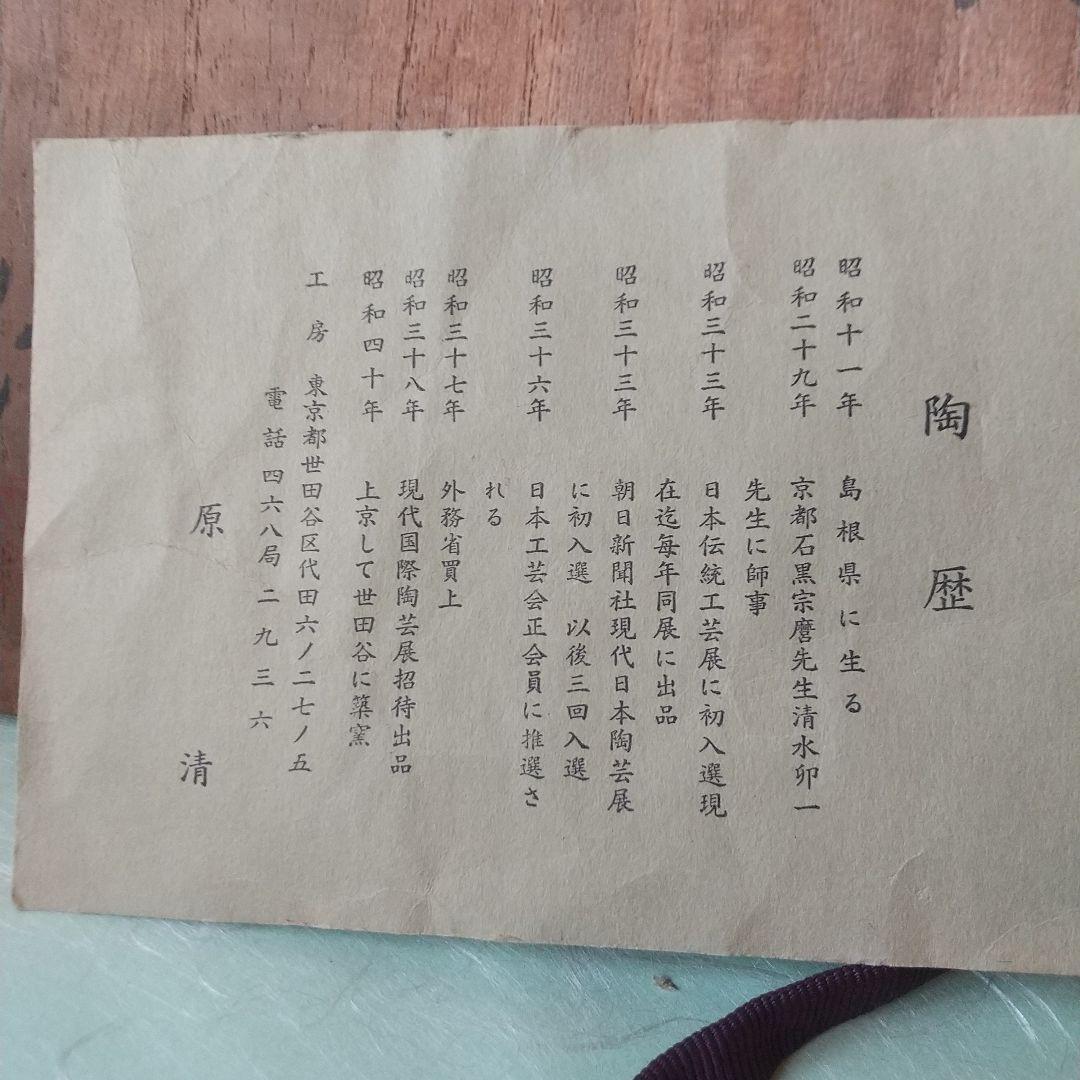 陶歴
昭和十一年 島根県に生る
昭和二十九年 京都石黒宗麿先生清水卯一
先生に師事
昭和三十三年 日本伝統工芸展に初入選現
在迄毎年同展に出品
昭和三十三年 朝日新聞社現代日本陶芸展
に初入選 以後三回入選
昭和三十六年 日本工芸会正会員に推選さ
れる
昭和三十七年 外務省買上
昭和三十八年 現代国際陶芸展招待出品
昭和四十年 上京して世田谷に築窯
工房 東京都世田谷区代田六ノ二七ノ五
電話四六八局二九三六
原清